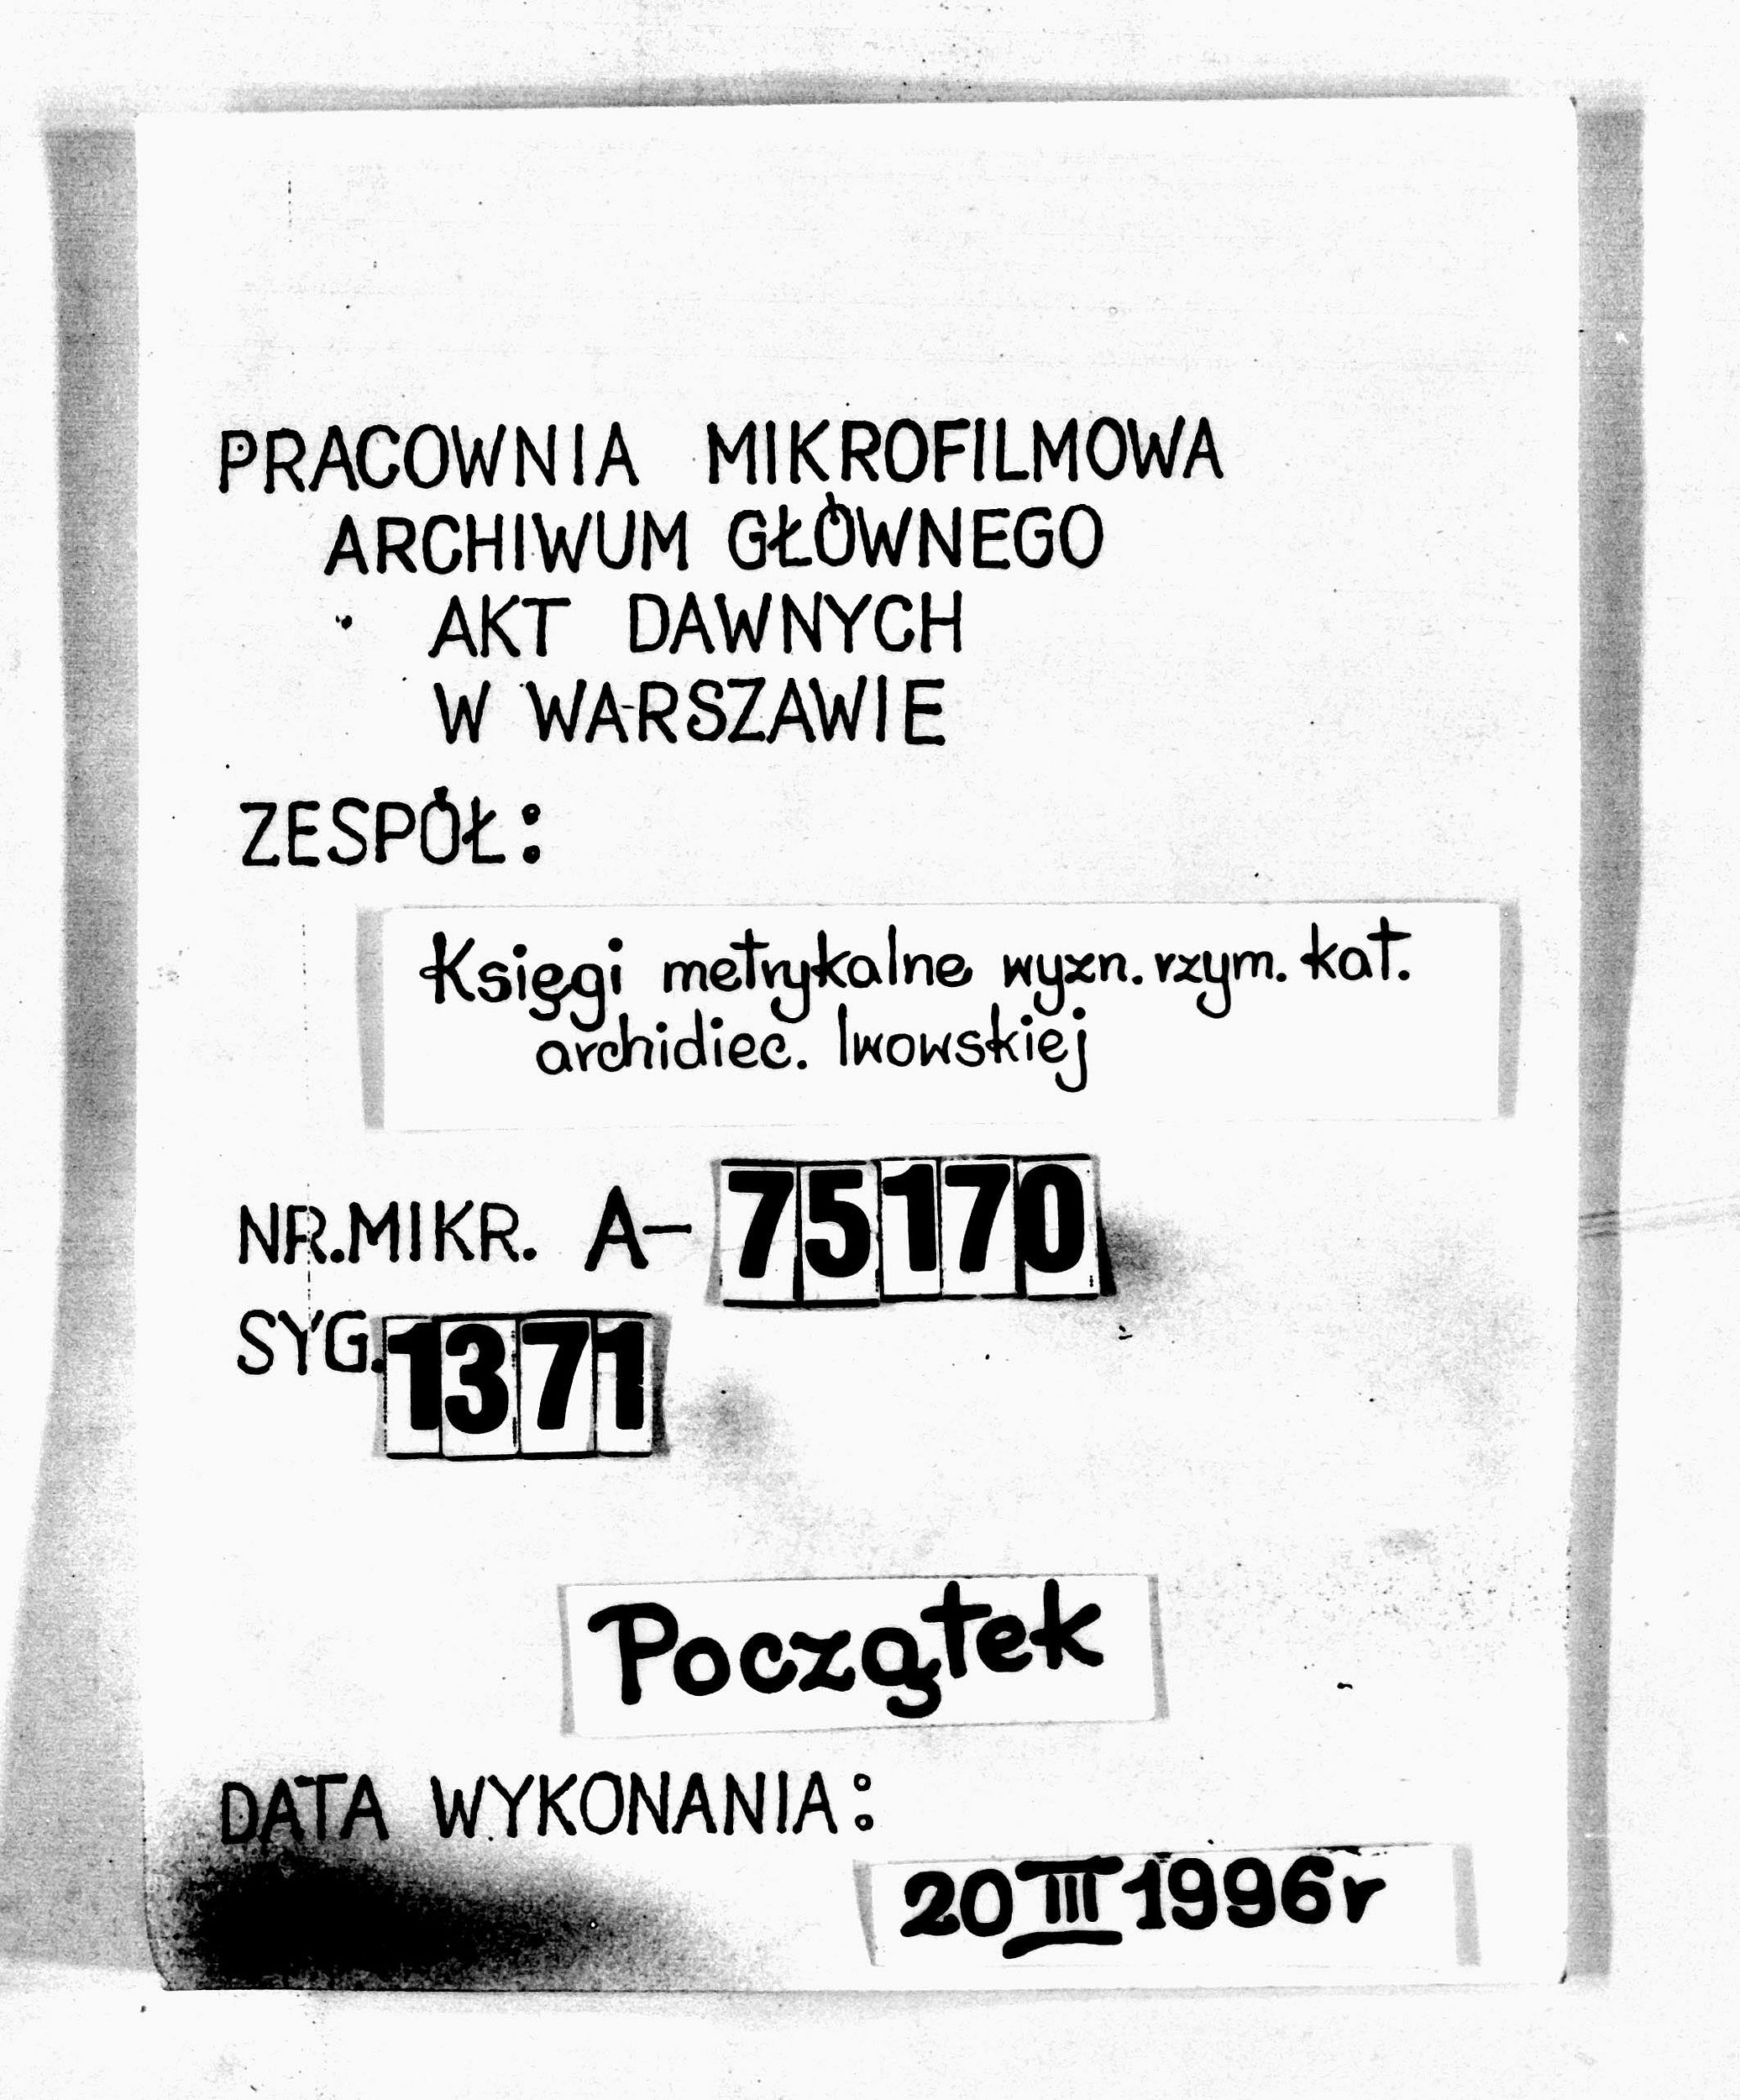 PRACOWNIA MIKROFILMOWA
ARCHIWUM GŁÓWNEGO
AKT DAWNYCH
W WARSZAWIE
ZESPÓŁ:
Księgi metrykalne wyzn. rzym. kat.
archidiec. lwowskiej
NR.MIKR. A- 75170
SYG. 1371
Początek
DATA WYKONANIA:
20 III 1996r